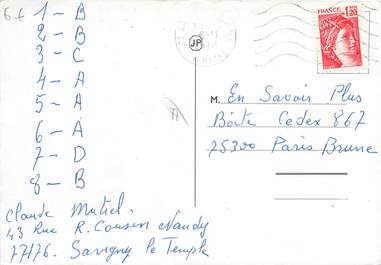 6€
1 - B
2 - B
3 - C
4 - A
5 - A
6 - A
7 - D
8 - B
Claude
43 Rue R. Cousin Nandy
77176. Savigny le Temple
JP
FRANCE
1,20
M. En Savoir Plus
Boîte Cedex 867
75300 Paris Brune